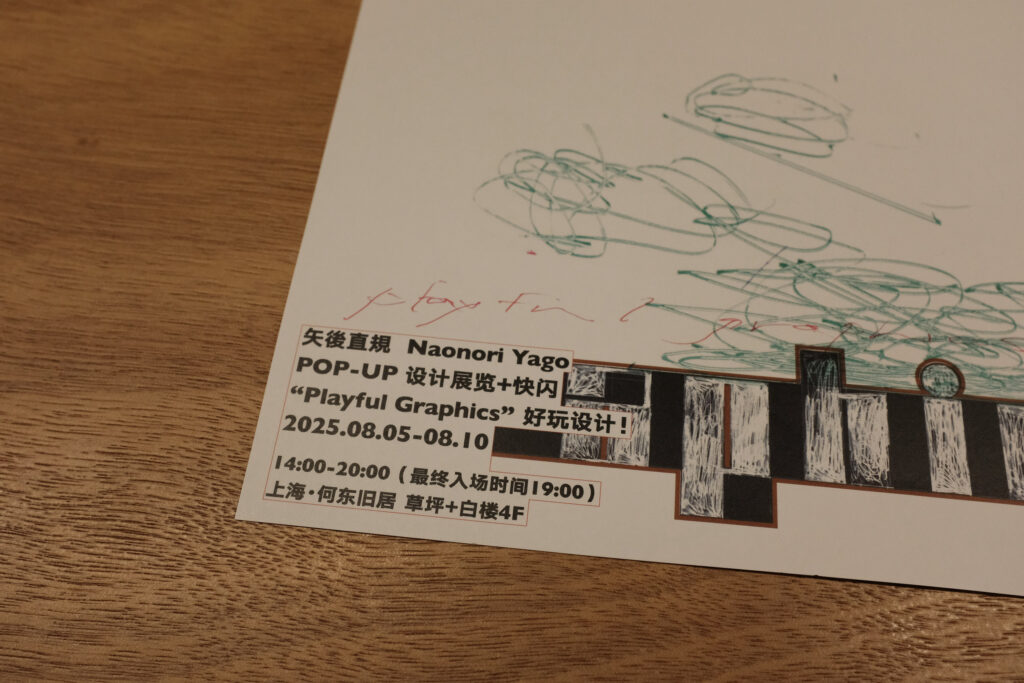 矢後直規 Naonori Yago
POP-UP 设计展览+快闪
“Playful Graphics” 好玩设计！
2025.08.05-08.10
14:00-20:00（最终入场时间19:00）
上海·何东旧居 草坪+白楼4F